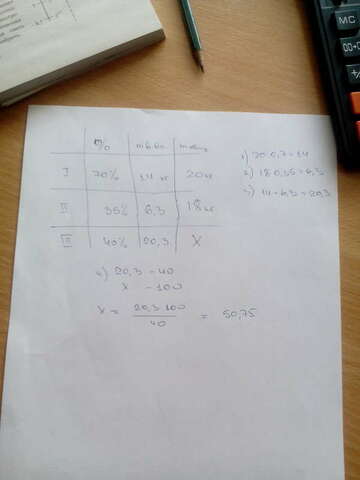 %
I 70% 14 кг 20кг
II 35% 6,3 18кг
III 40% 20,3 X
1) 20·0,7=14
2) 18·0,35=6,3
3) 14+6,3=20,3
4) 20,3 - 40
x - 100
x = 20,3·100 / 40 = 50,75
MC